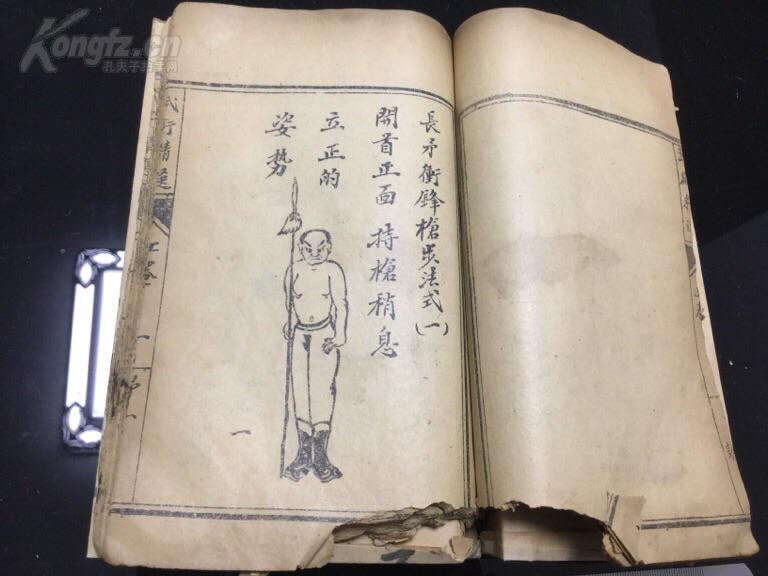 長矛衝鋒槍步法式(一)
開首正面 持槍稍息
立正的
姿勢
一
武術精選
Kongfz.cn
孔夫子旧书网